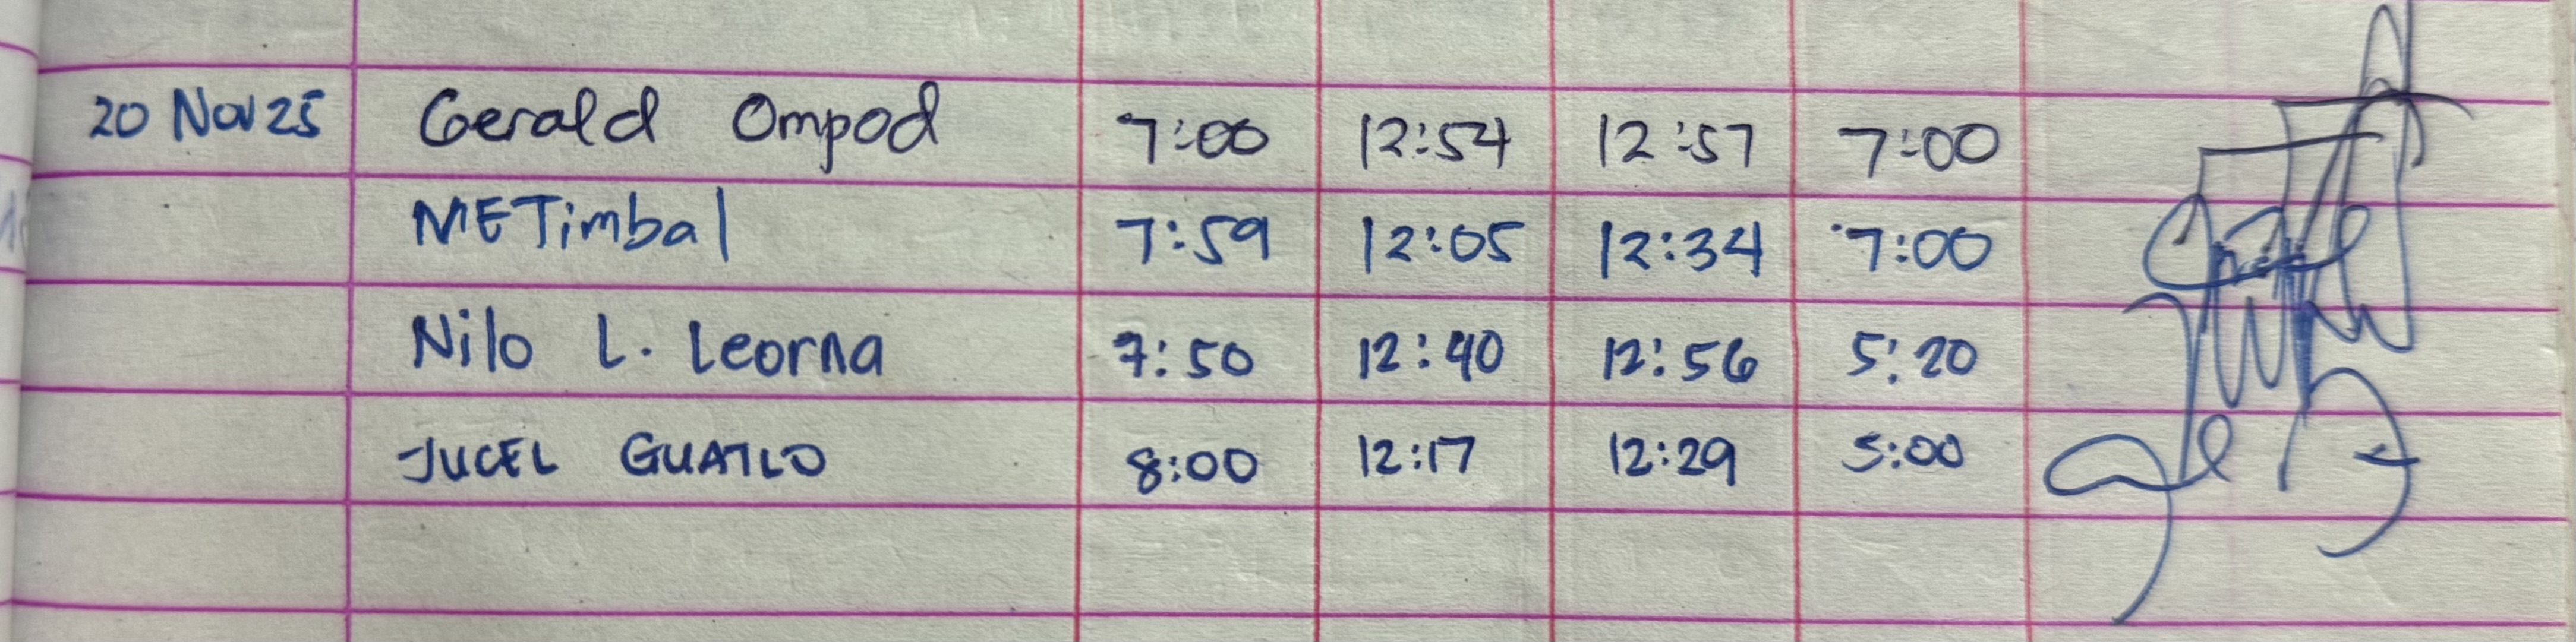 20 Nov 25 Gerald Ompod 7:00 12:54 12:57 7:00
METimbal 7:59 12:05 12:34 7:00
Nilo L. Leorna 7:50 12:40 12:56 5:20
JUCEL GUATLO 8:00 12:17 12:29 5:00